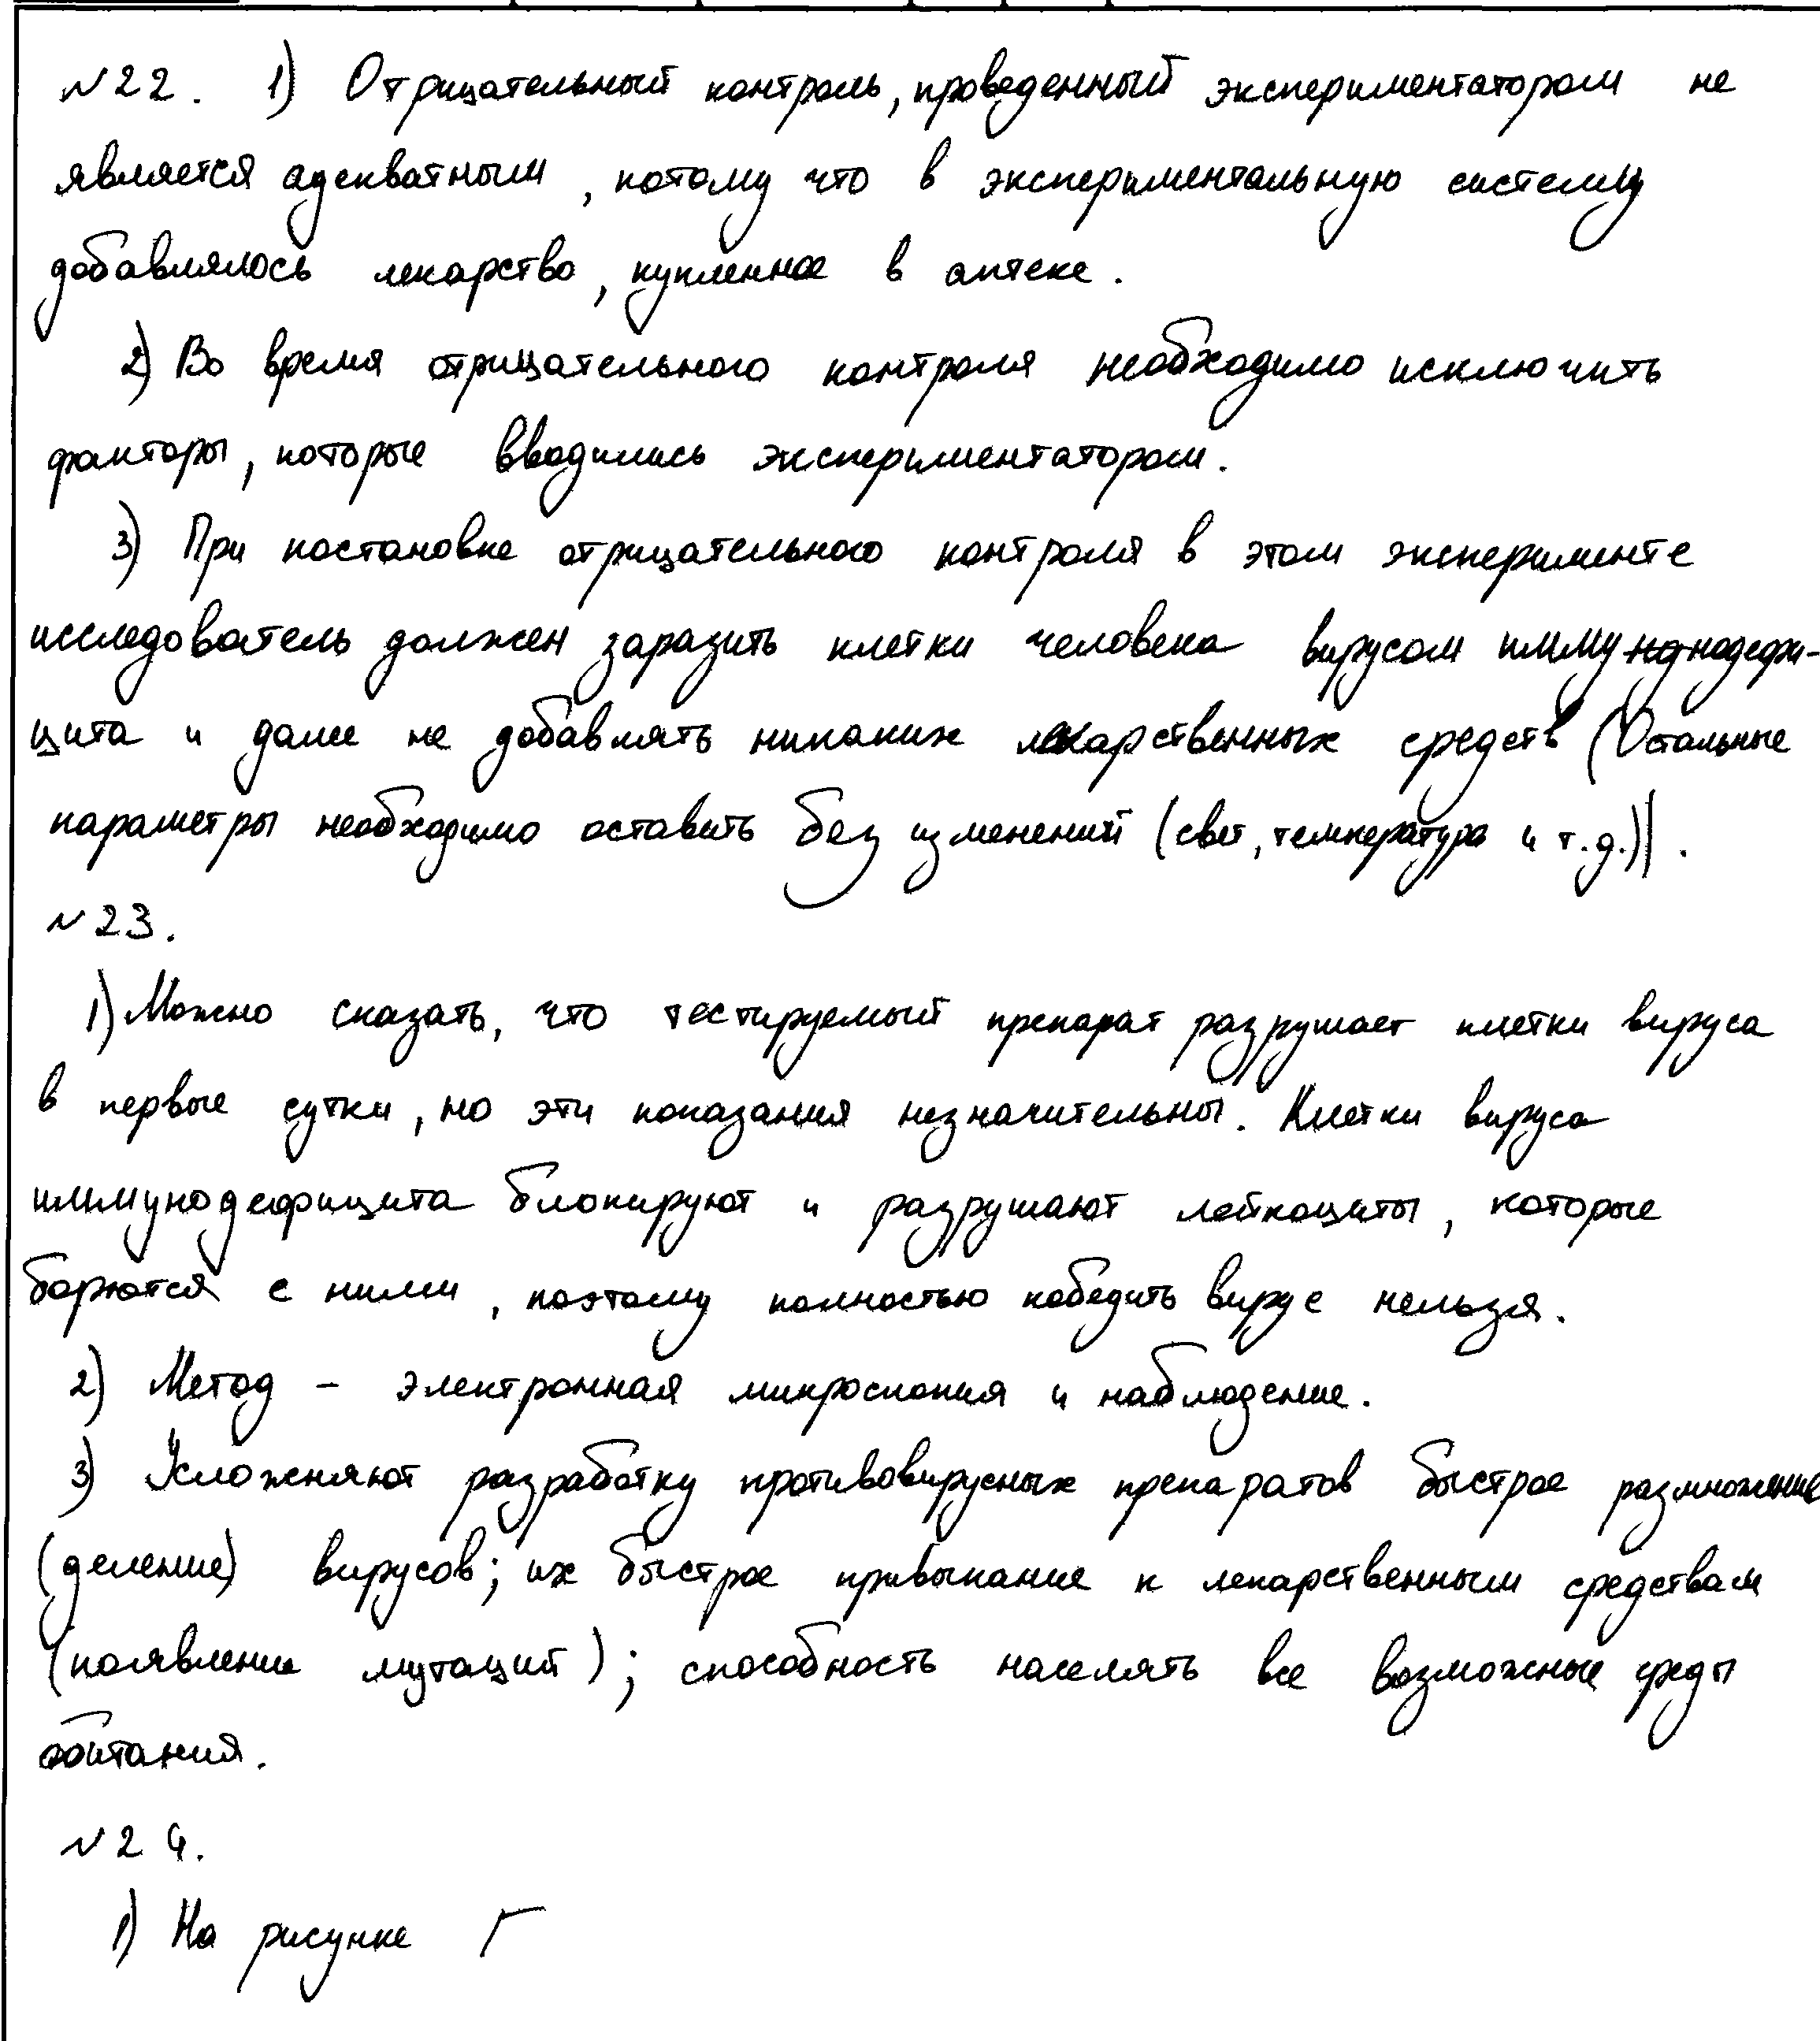 №22. 1) Отрицательный контроль, проведенный экспериментатором не
является адекватным, потому что в экспериментальную систему
добавлялось лекарство, купленное в аптеке.
2) Во время отрицательного контроля необходимо исключить
факторы, которые вводились экспериментатором.
3) При постановке отрицательного контроля в этом эксперименте
исследователь должен заразить клетки человека вирусом иммунодефи-
цита и далее не добавлять никаких лекарственных средств (Остальные
параметры необходимо оставить без изменений (свет, температура и т.д.)).
№23.
1) Можно сказать, что тестируемый препарат разрушает клетки вируса
в первые сутки, но эти показания незначительны. Клетки вируса
иммунодефицита блокируют и разрушают лейкоциты, которые
борются с ними, поэтому полностью победить вирус нельзя.
2) Метод – электронная микроскопия и наблюдение.
3) Усложняют разработку противовирусных препаратов быстрое размножение
(деление) вирусов; их быстрое привыкание к лекарственным средствам
(появление мутаций); способность населять все возможные среды
обитания.
№24.
1) На рисунке Г